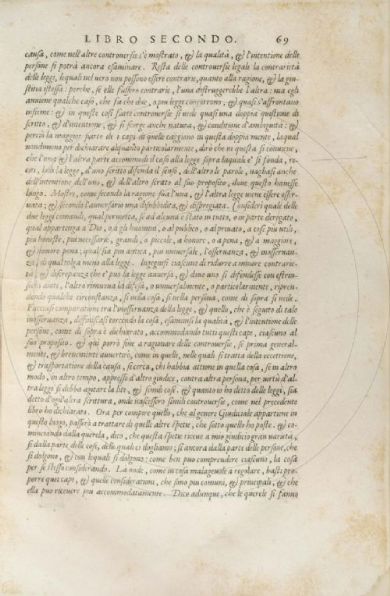 LIBRO SECONDO. 69
causa, come nell'altre controversie s'è mostrato, & la qualità, & l'intentione delle
persone si potrà ancora esaminare. Resta delle controversie legali la contrarietà
delle leggi, lequali nel vero non possono essere contrarie, quanto alla ragione, & la giu-
stitia istessa: perche, se elle fussero contrarie, l'una distruggerebbe l'altra: ma egli
aviene qualche caso, che sia che due, o piu leggi concorrono, & quasi s'affrontano
insieme: & in queste così fatte controversie si vede quasi una doppia questione di
scritto, d'intentione, & si scorge anchi natura, & conditione d'ambiguità: &
perciò la maggior parte de i capi di quelle caggiono in questa
dirò che in questa si conviene,
che l'uno & l'altra parte accommodi il caso alla legge sopra laquale e' si fonda,
lodi la legge, d'uno scritto difenda il senso, dell'altro le parole,
dell'intentione dell'uno, & dell'altro scritto al suo proposito, donde questo havesse
luogo. Mostri, come stando la ragione sua l'una, & l'altra legge viene essere osser-
vata; & secondo l'avversario una disubbidita, & dispregiata. Consideri quale delle
due leggi comandi, qual permetta, se ad alcuna è stato in tutto, o in parte derogato,
qual appartenga a Dio, o a gli huomini, o al publico, o al privato, a cose più utili,
più honeste, più necessarie, grandi, o piccole, a honore, o a pena, & a maggiore,
& minore pena: qual sia più antica, più universale, l'osservanza, & inosservan-
za, di qual tolga meno alla legge. Ingegnisi ciascuno di ridurre a minore contrarie-
tà, & discrepanza che e' può la legge
l'altro rimuova la difesa, o universalmente, o particolarmente,
dendo qualche circonstanza, si nella cosa, si nella persona, come di sopra si vede.
Facciasi comparatione tra l'osservanza della legge, & quello, che è seguito di tale
inosservanza, la cosa, esamini si la qualità, & l'intentione delle
persone, come di sopra è dichiarato, accommodando tutti questi capi, ciascuno al
suo proposito. & qui porrò fine a ragionare delle controversie, se prima general-
mente, & brevemente avvertirò, come in quelle, nelle quali si tratta della eccettione,
& trasportatione della causa, si cerca, chi habbia attione in quella cosa, se in altro
modo, in altro tempo, appresso d'altro giudice, contra altra persona, per virtù d'al-
tra legge si debba agitare la lite, & simili cose: & quanto io ho detto delle leggi, sia
detto d'ogn'altra scrittura, onde nascessero simili controversie, come nel precedente
libro ho dichiarato. Ora per compire quello, che al genere Giudiciale appartiene in
questo luogo, passerò a trattare di quelle altre spetie, che sotto quello ho poste. & co-
minciando dalla querela, dico, che questa spetie riceve a mio giudicio gran varietà,
si dalla parte delle cose, delle quali ci dogliamo; si ancora dalla parte delle persone, che
si dolgono, & con lequali si dolgono: come ben può comprendere ciascuno, la cosa
per se stessa considerando. La onde, come in cosa malagevole a regolare, basti pro-
porre que capi, & quelle considerationi, che sono più comuni, & principali, & che
ella può ricevere più accommodatamente. Dico adunque, che le querele si fanno